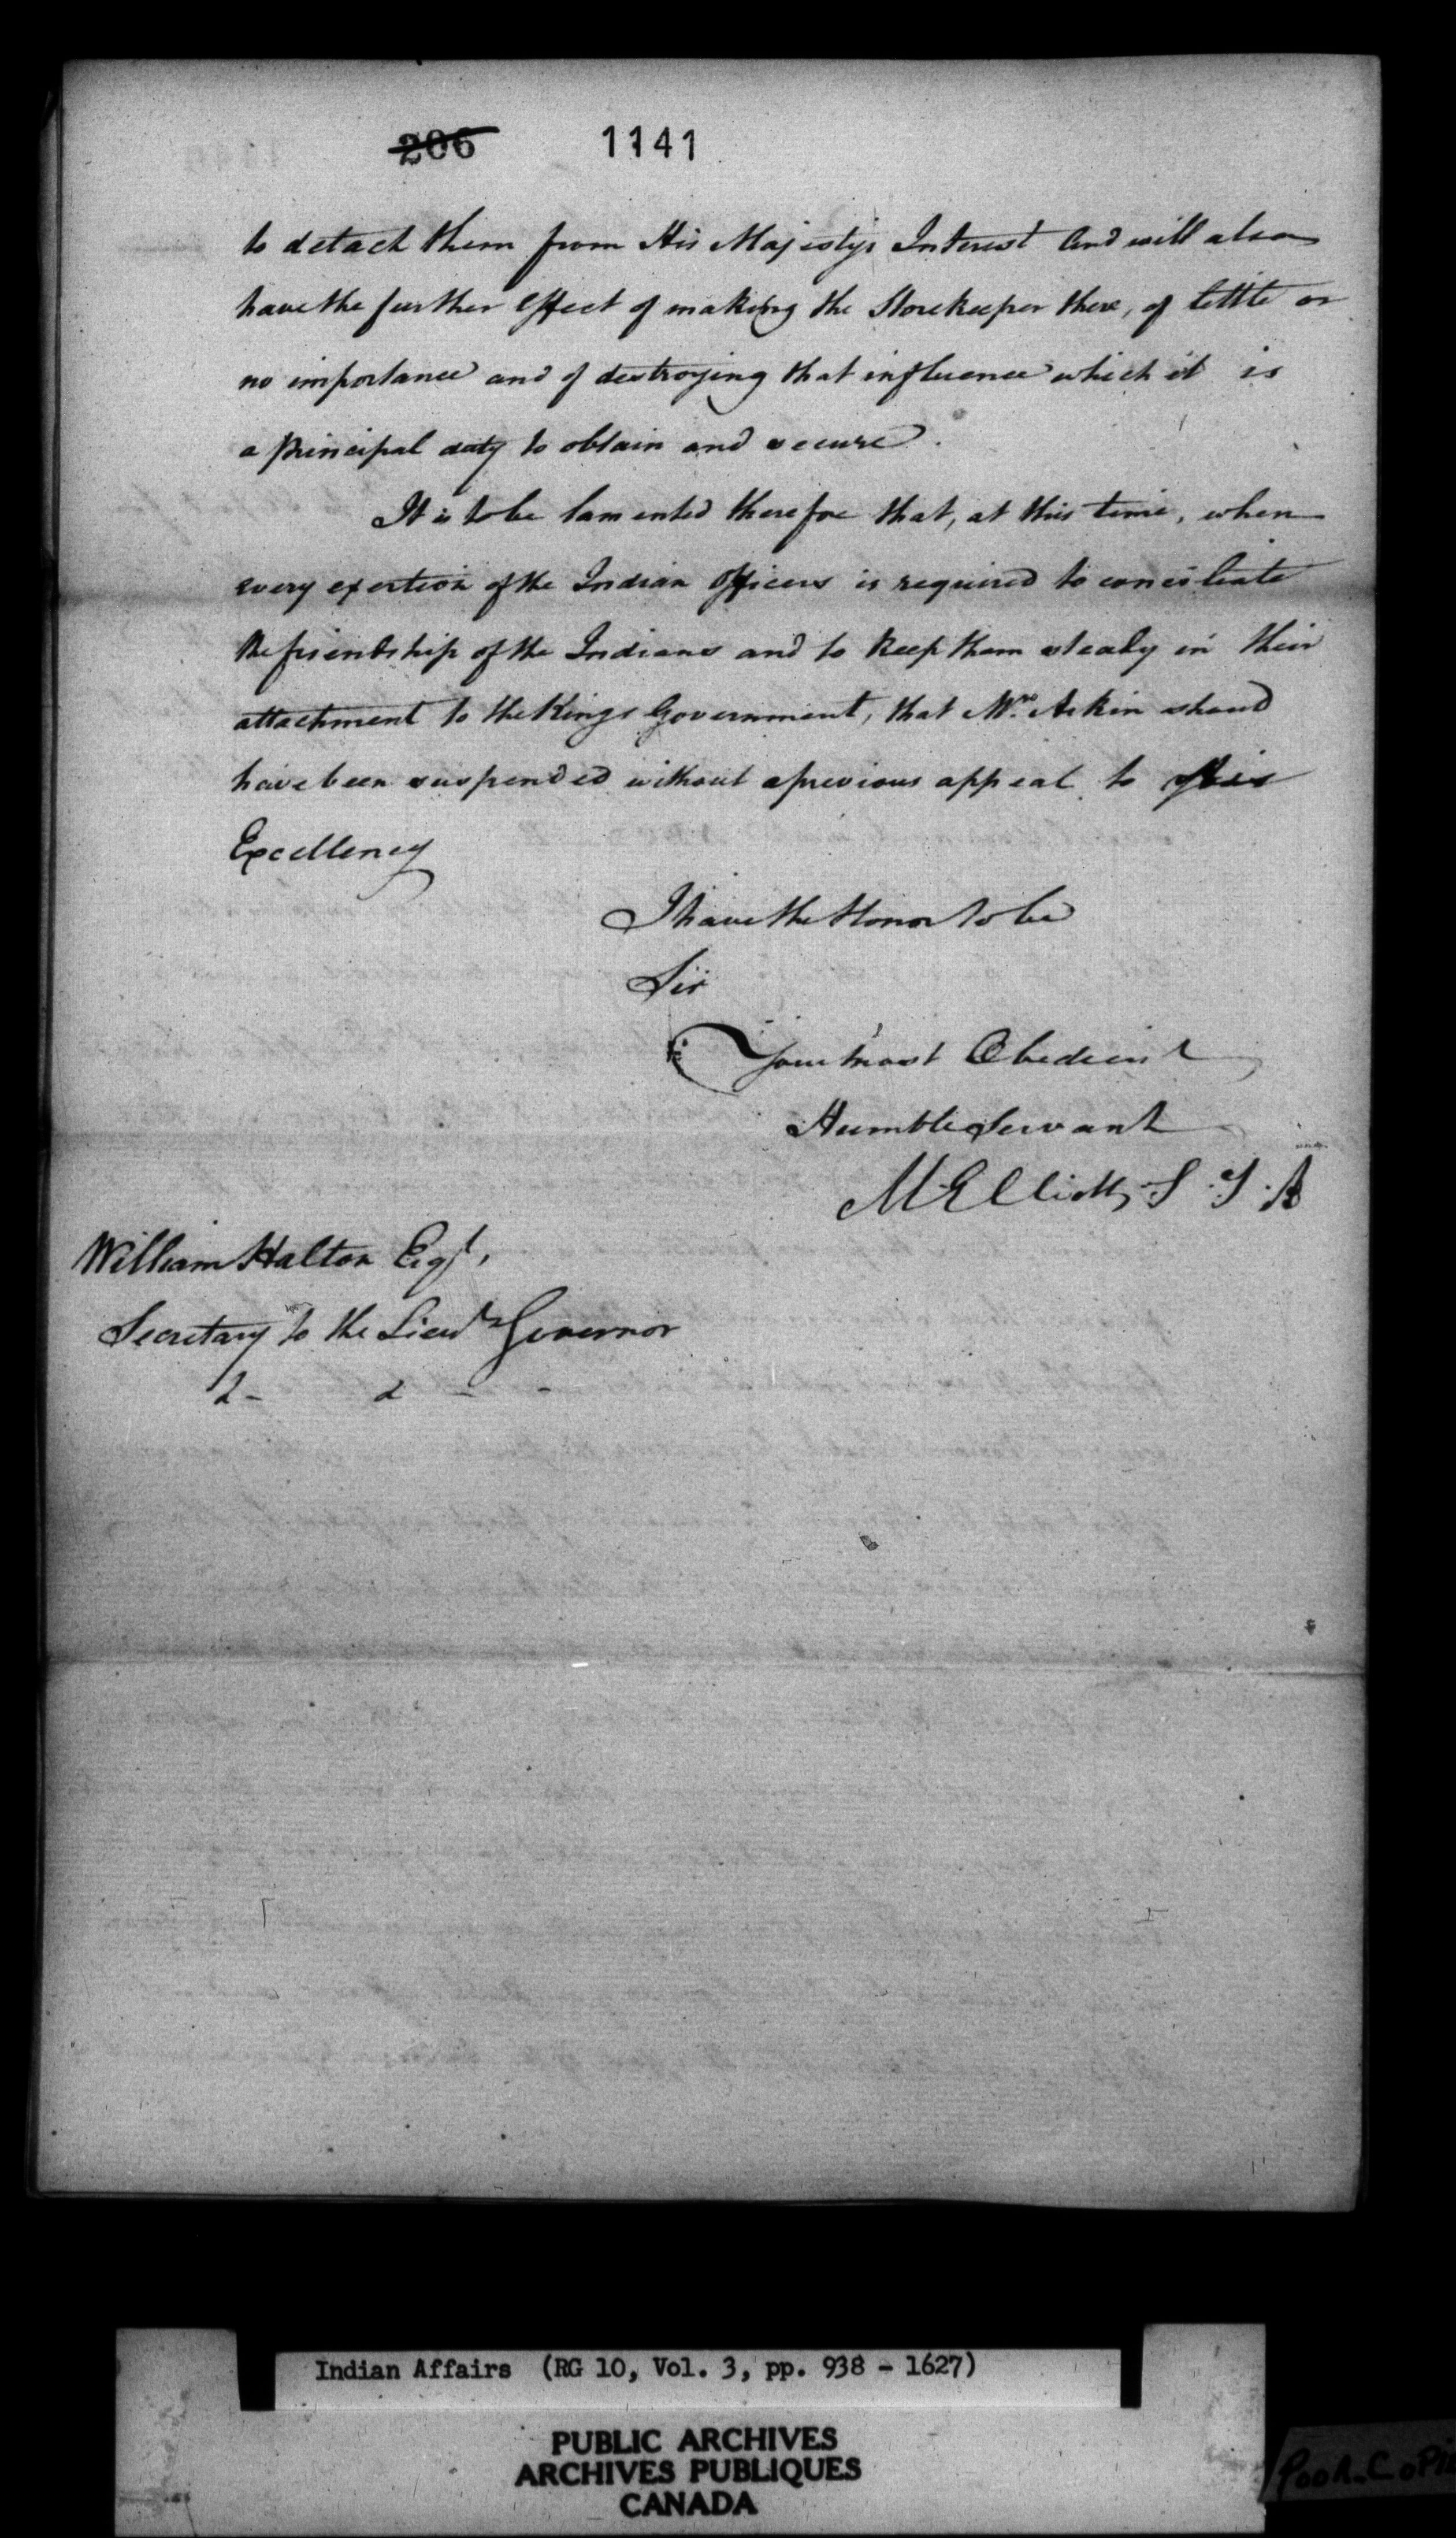 206 1141
to detach them from His Majestys Interest and will also
have the further effect of making the Storekeeper there, of little or
no importance and of destroying that influence which it is
a principal duty to obtain and secure.
It is to be lamented therefore that, at this time, when
every exertion of the Indian Officers is required to conciliate
the friendship of the Indians and to keep them steady in their
attachment to the Kings Government, that Mr. Askin shoud
have been suspended without a previous appeal to His
Excellency
I have the Honor to be
Sir
Your most Obedient
Humble Servant
M Elliott, S. I. A
William Halton Esqr.
Secretary to the Lieut Governor
Indian Affairs (RG 10, Vol. 3, pp. 938 - 1627)
PUBLIC ARCHIVES
ARCHIVES PUBLIQUES
CANADA